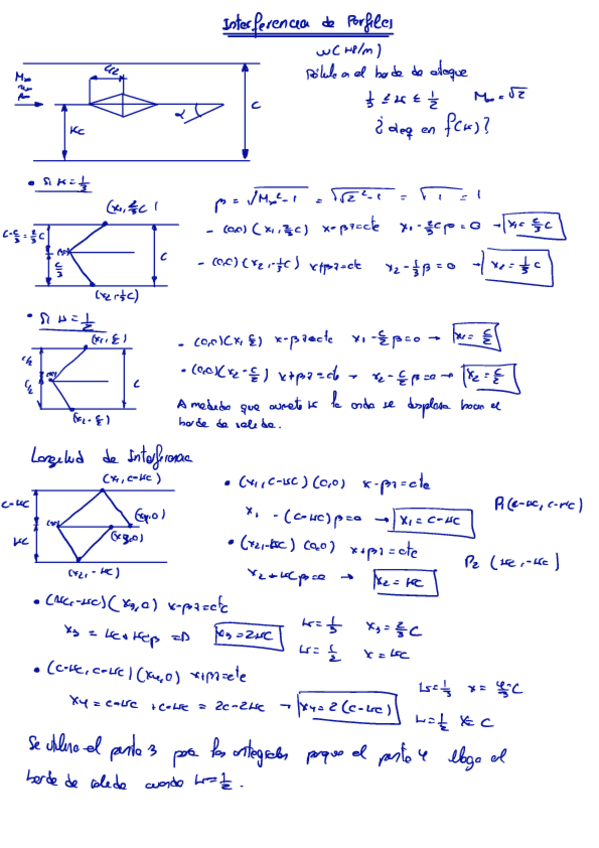 Interferencia de Perfiles
M∞
P∞
c/2
α
KC
C
w(HP/m)
Pólvula al borde de ataque
1/3 ≤ K ≤ 1/2 M∞ = √2
¿ deq en f(K)?
• Si K = 1/3
β = √M∞²-1 = √√2²-1 = √1 = 1
(x1, 2/3 C)
C-C/3 = 2/3 C
C/3
C
(x2, -1/3 C)
- (0,0) (x1, 2/3 C) x-βz=cte x1 - 2/3 Cβ = 0 → x1 = 2/3 C
- (0,0) (x2, -1/3 C) x+βz=cte x2 - 1/3 β = 0 → x2 = 1/3 C
• Si K = 1/2
(x1, C/2)
C/2
C/2
C
(x2 - C/2)
- (0,0)(x1, C/2) x-βz=cte x1 - C/2 β = 0 → x1 = C/2
- (0,0)(x2 - C/2) x+βz=cte → x2 - C/2 β = 0 → x2 = C/2
A medida que aumenta K la onda se desplaza hacia el
borde de salida.
Longitud de Interferencia
(x1, C-KC)
C-KC
KC
(x4,0)
(x3,0)
(x2, -KC)
• (x1, C-KC) (0,0) x-βz=cte
x1 - (C-KC)β=0 → x1 = C-KC
P1(C-KC, C-KC)
• (x2, -KC) (0,0) x+βz=cte
x2 + KCβ=0 → x2 = KC
P2 (KC, -KC)
• (KC, -KC) (x3, 0) x-βz=cte
x3 = KC+KCβ ⇒ x3=2KC
K= 1/3 x3= 2/3 C
K= 1/2 x = KC
• (C-KC, C-KC) (x4,0) x+βz=cte
x4 = C-KC + C-KC = 2C-2KC → x4=2(C-KC)
K=1/3 x = 4/3 C
K=1/2 x= C
Se utiliza el punto 3 para las integrales porque el punto 4 llega al
borde de salida cuando K=1/2.